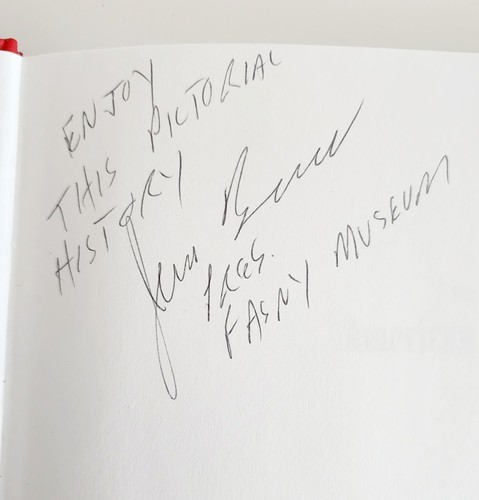 ENJOY
THIS PICTORIAL
HISTORY
PRES.
FASNY MUSEUM